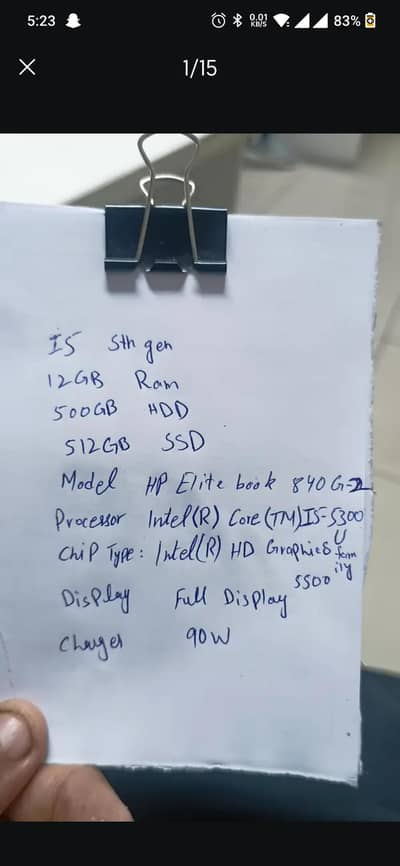 5:23
0.01 KB/S
83%
1/15
I5 5th gen
12GB Ram
500GB HDD
512GB SSD
Model HP Elite book 840 G-2
Processor Intel(R) Core(TM)I5-5300U
Chip Type: Intel(R) HD Graphics family
5500
Display Full Display
Charger 90W